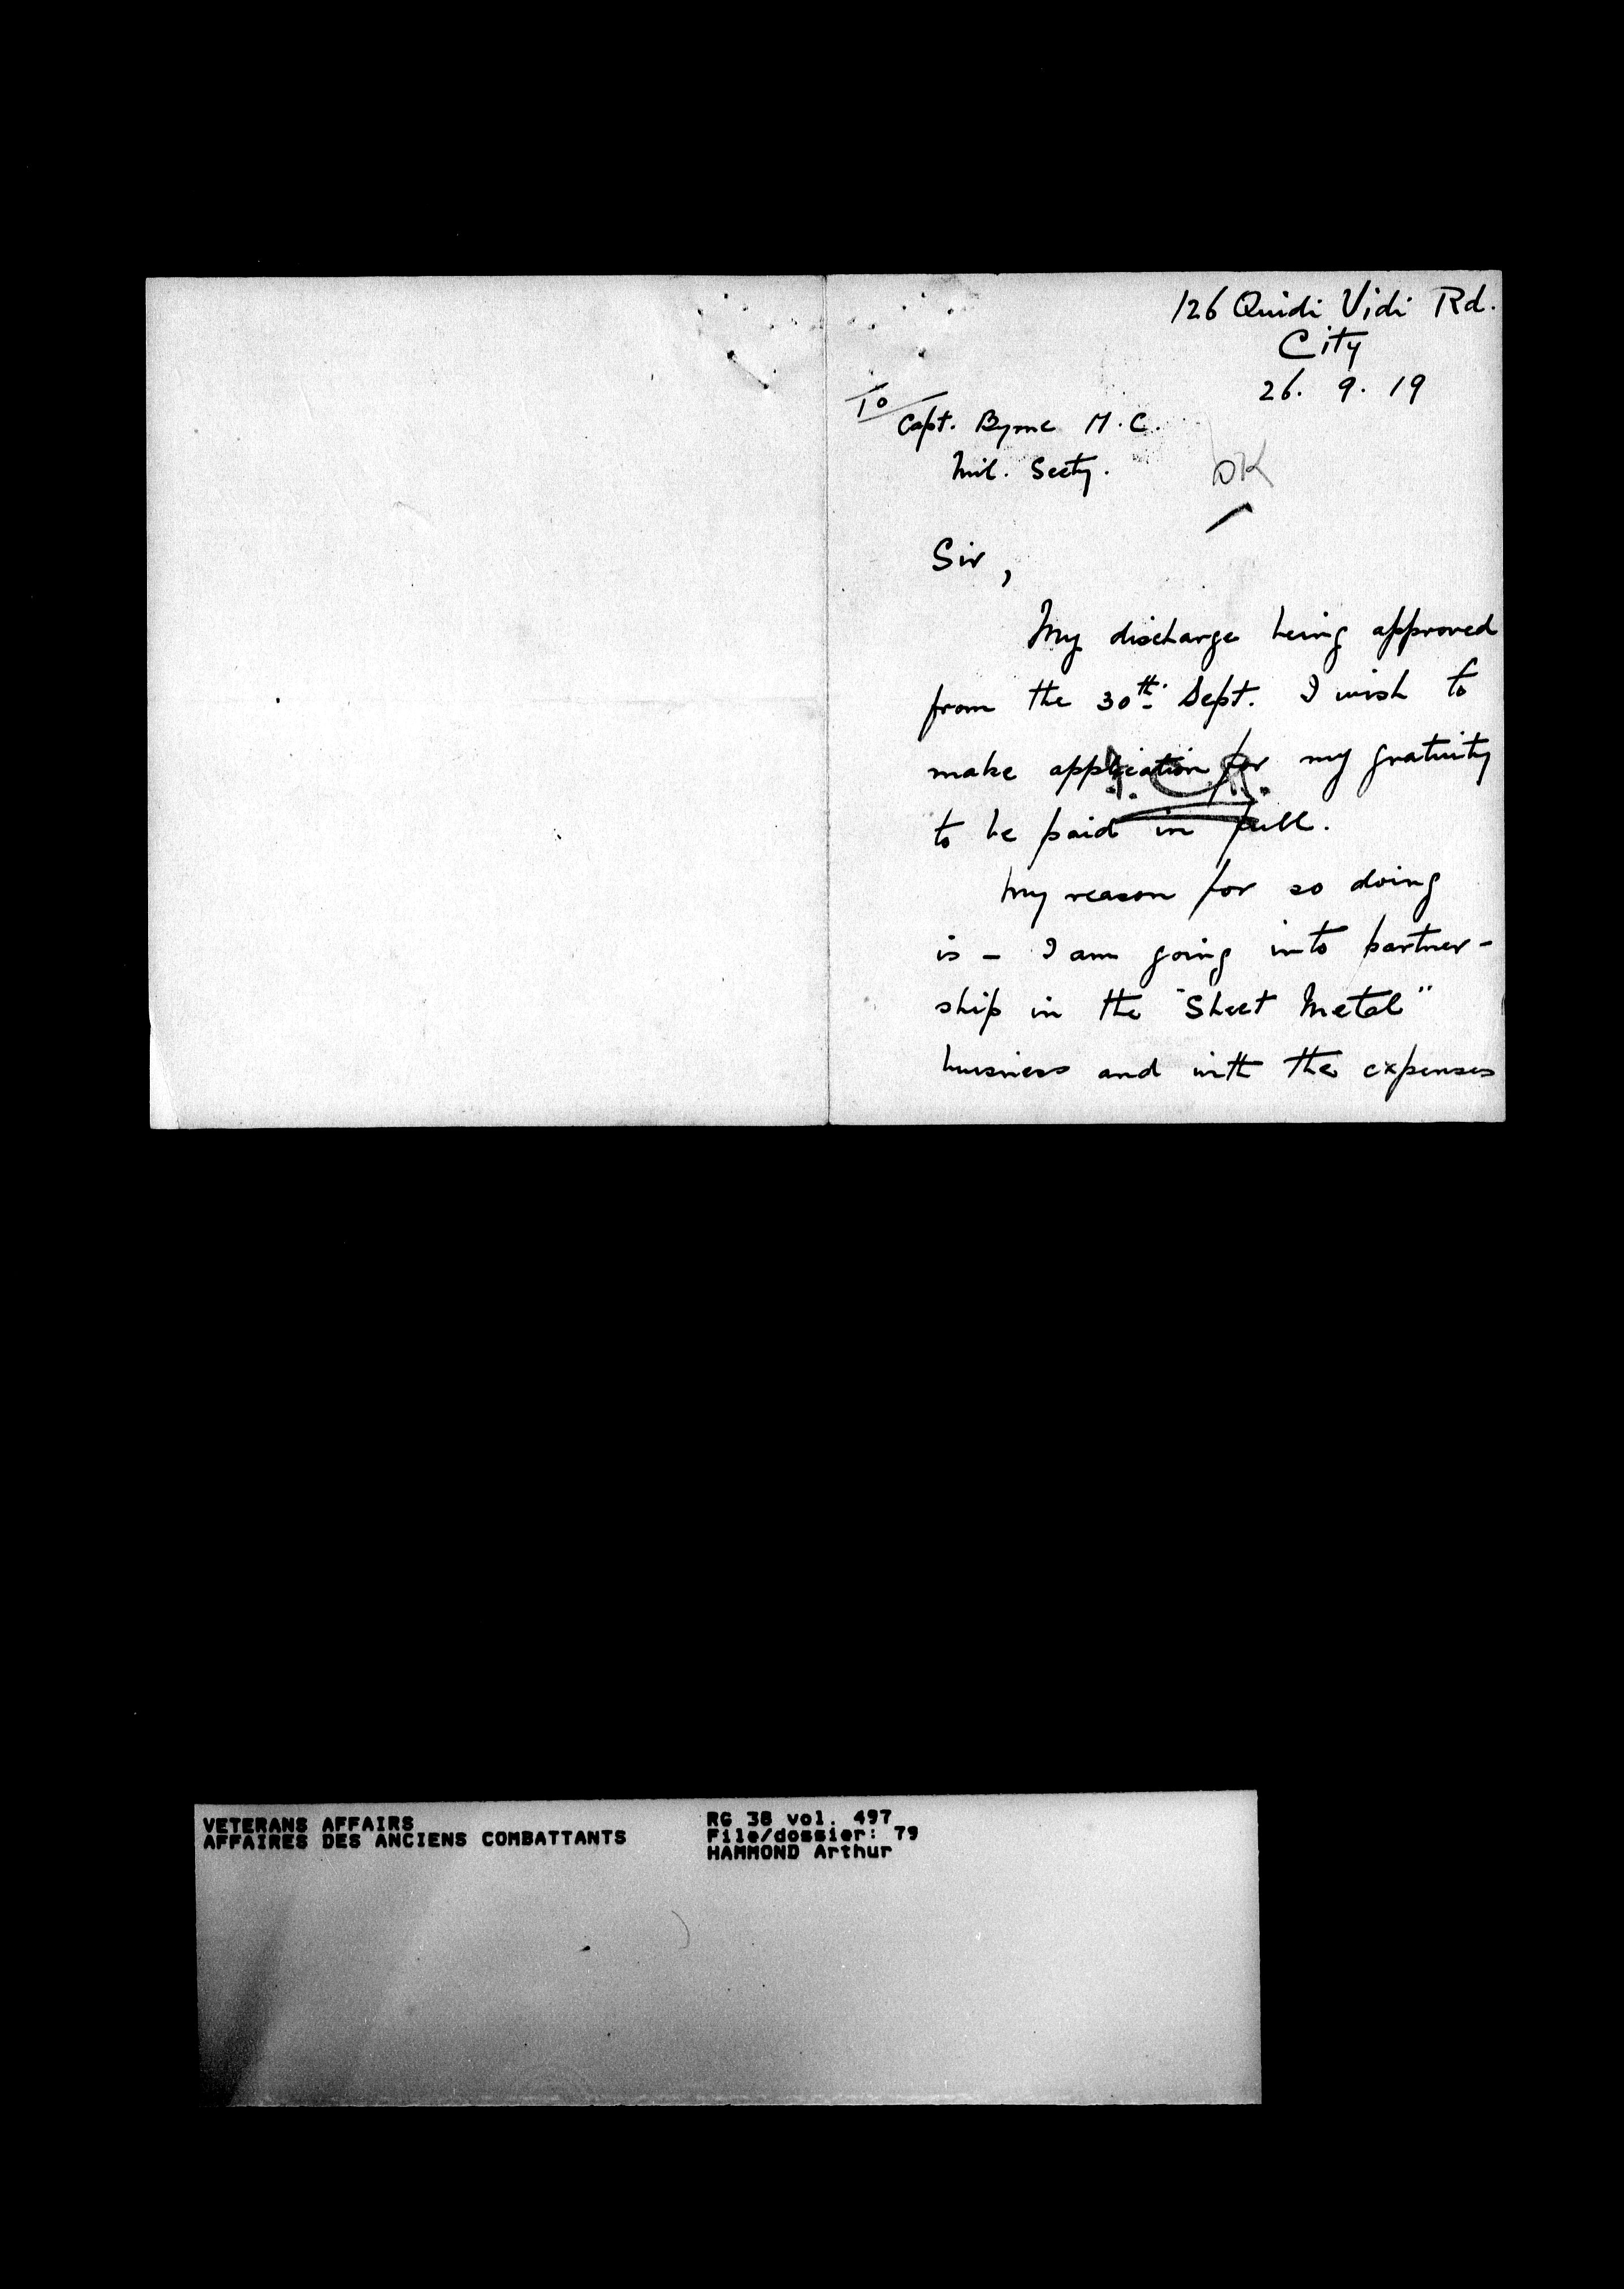 126 Quidi Vidi Rd.
City
26. 9. 19
To
Capt. Byrne M.C.
Mil. Secty.
OK
Sir,
My discharge being approved
from the 30th. Sept. I wish to
make application for my gratuity
to be paid in full.
My reason for so doing
is - I am going into partner-
ship in the "Sheet Metal"
business and with the expenses
VETERANS AFFAIRS
AFFAIRES DES ANCIENS COMBATTANTS
RG 38 vol. 497
File/dossier: 79
HAMMOND Arthur